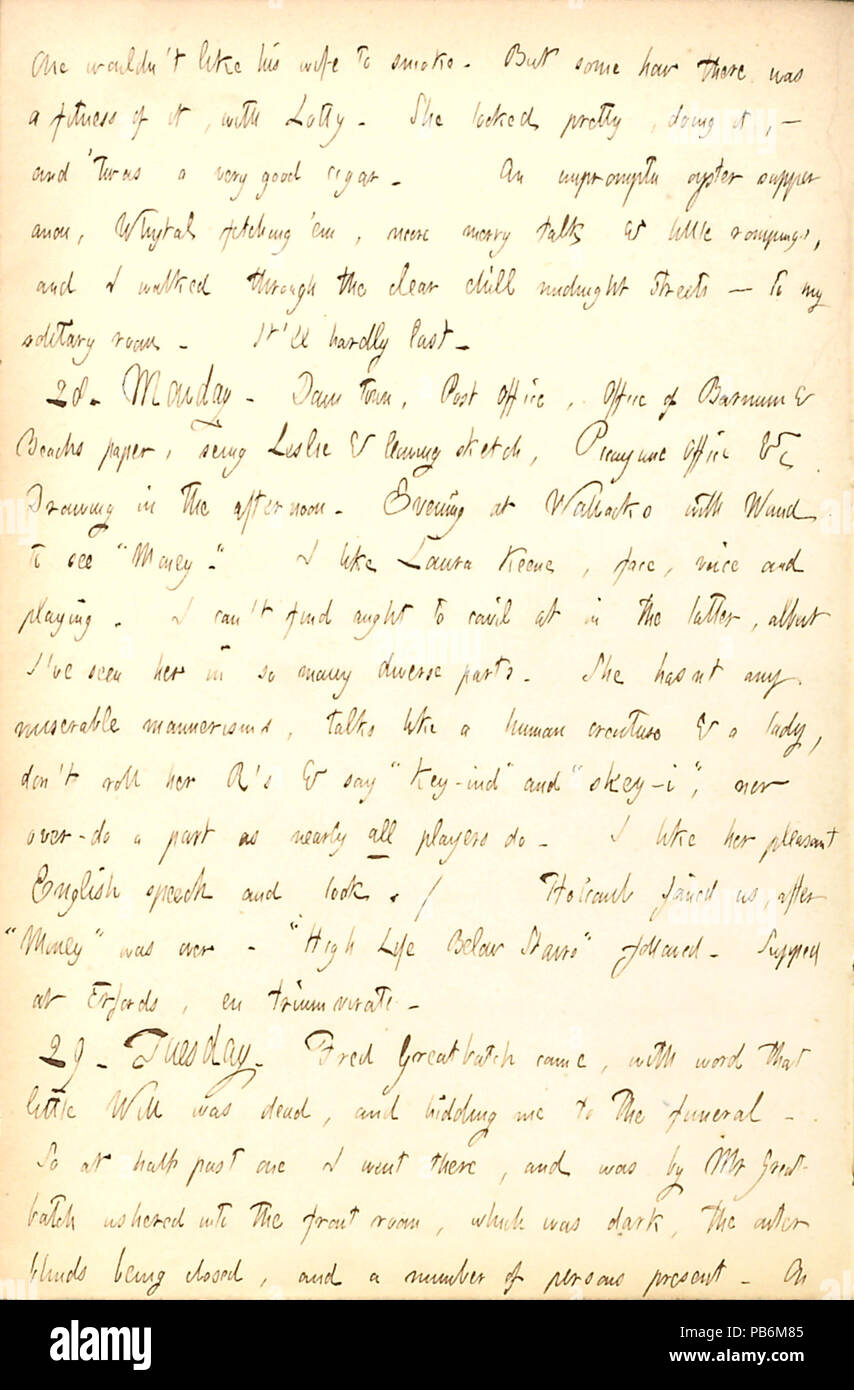 One wouldn't like his wife to smoke. But some how there was
a fitness of it, with Lotty. She looked pretty, doing it, —
and 'twas a very good cigar. An impromptu oyster supper
anon, Whytal fetching 'em, more merry talk & little rompings,
and I walked through the clear chill midnight streets — to my
solitary room. It'll hardly last.
28. Monday. Down town, Post Office, Office of Barnum &
Beachs paper, seing Leslie & leaving sketch, Picayune Office &c.
Drawing in the afternoon. Evening at Wallacks with Waud
to see "Money." I like Laura Keene, face, voice and
playing. I can't find aught to cavil at in the latter, albeit
I've seen her in so many diverse parts. She hasnt any
miserable mannerisms, talks like a human creature & a lady,
don't roll her R's & say "Key-ind" and "skey-i", nor
over-do a part as nearly all players do. I like her pleasant
English speech and look. / Holcomb joined us, after
"Money" was over. "High Life Below Stairs" followed. Supped
at Erfords, en triumvirate.
29. Tuesday. Fred Greatbatch came, with word that
little Will was dead, and bidding me to the funeral.
So at half past one I went there, and was by Mr Great-
batch ushered into the front room, which was dark, the outer
blinds being closed, and a number of persons present. On
alamy
Image ID: PB6M85
www.alamy.com